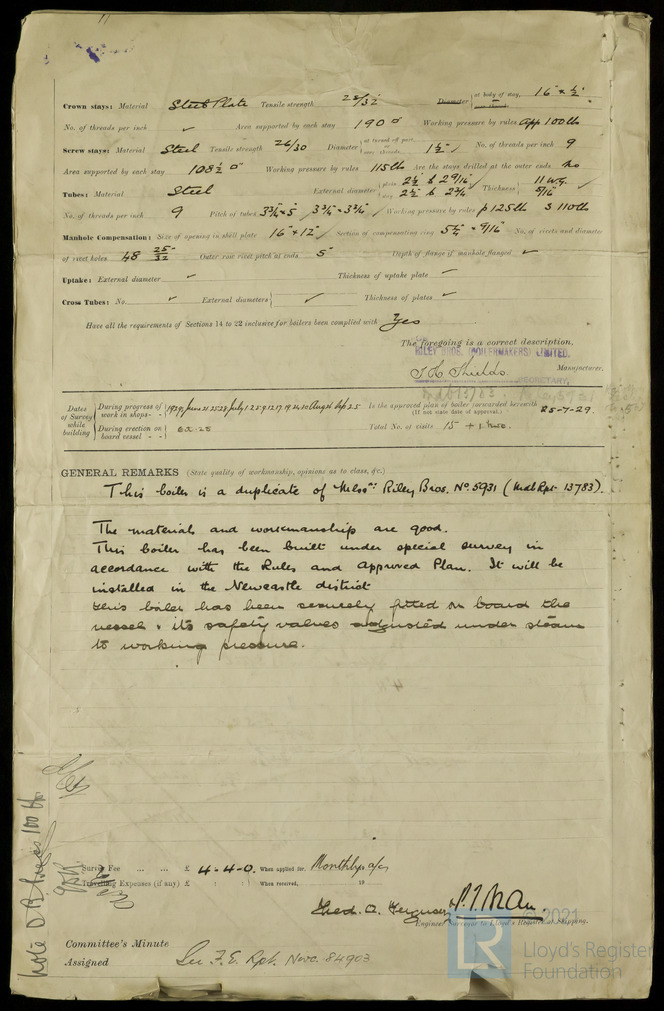 Crown stays: Material Steel Plate Tensile strength 28/32 Diameter at body of stay, 16 × ½
No. of threads per inch ✓ Area supported by each stay 190 □ Working pressure by rules App. 100 lb
Screw stays: Material Steel Tensile strength 26/30 Diameter 1½ ✓ No. of threads per inch 9
Area supported by each stay 108½ □ Working pressure by rules 115 lb Are the stays drilled at the outer ends No
Tubes: Material Steel External diameter plain 2½ & 2 9/16 stay 2½ & 2¾ Thickness 11 W.G. 5/16 ✓
No. of threads per inch 9 Pitch of tubes 3¾ × 5 / 3¾ × 3¾ ✓ Working pressure by rules p 125 lb S 110 lb
Manhole Compensation: Size of opening in shell plate 16 × 12 Section of compensating ring 5½ × 9/16 No. of rivets and diameter
of rivet holes 48 25/32 Outer row rivet pitch at ends 5 Depth of flange if manhole flanged ✓
Uptake: External diameter ✓ Thickness of uptake plate ✓
Cross Tubes: No. ✓ External diameters ✓ Thickness of plates ✓
Have all the requirements of Sections 14 to 22 inclusive for boilers been complied with Yes
The foregoing is a correct description,
RILEY BROS. (BOILERMAKERS) LIMITED,
Manufacturer.
Shields
SECRETARY,
Dates of Survey while building
During progress of work in shops - - 1929 June 21 25 28 July 1
Is the approved plan of boiler forwarded herewith 25-7-29
(If not state date of approval.)
During erection on board vessel - -
Total No. of visits 15 +
GENERAL REMARKS (State quality of workmanship, opinions as to class, &c.)
This boiler is a duplicate of Messrs Riley Bros. No 5931 (Mdb Rpt. 13783).
The materials and workmanship are good.
This boiler has been built under special survey in
accordance with the Rules and Approved Plan. It will be
installed in the Newcastle district
This boiler has been securely fitted on board the
vessel & its safety valves adjusted under steam
to working pressure.
Survey Fee ... ... £ 4 - 4 - 0. When applied for, Monthly a/c
Travelling Expenses (if any) £ : : When received, 19
Fred. A. Ferguson
Engineer Surveyor to Lloyd's Register of Shipping.
Committee's Minute
Assigned See F.E. Rpt. Nwc. 84903
© 2021
LR
Lloyd's Register
Foundation